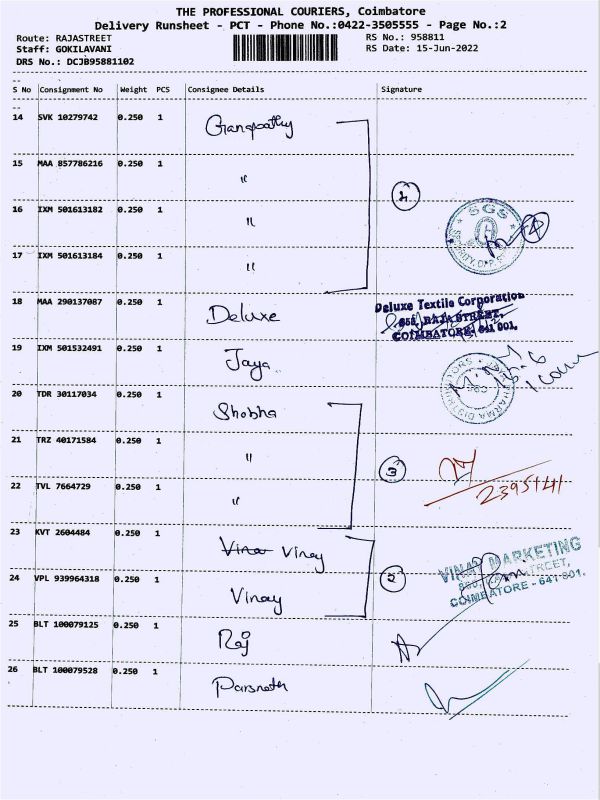 THE PROFESSIONAL COURIERS, Coimbatore
Delivery Runsheet - PCT - Phone No.:0422-3505555 - Page No.:2
Route: RAJASTREET
Staff: GOKILAVANI
DRS No.: DCJB95881102
RS No.: 958811
RS Date: 15-Jun-2022
S No Consignment No Weight PCS Consignee Details Signature
14 SVK 10279742 0.250 1 Ganapathy
15 MAA 857786216 0.250 1 "
16 IXM 501613182 0.250 1 "
17 IXM 501613184 0.250 1 "
4
SGS
4
18 MAA 290137087 0.250 1 Deluxe
Deluxe Textile Corporation
RAJA STREET,
COIMBATORE - 641 001.
19 IXM 501532491 0.250 1 Jaya
PHARMA DISTRIBUTORS
20 TDR 30117034 0.250 1 Shobha
21 TRZ 40171584 0.250 1 "
22 TVL 7664729 0.250 1 "
3
2395141
23 KVT 2604484 0.250 1 Vinay
24 VPL 939964318 0.250 1 Vinay
2
VINAY MARKETING
COIMBATORE - 641 001.
25 BLT 100079125 0.250 1 Raj
26 BLT 100079528 0.250 1 Parsnath